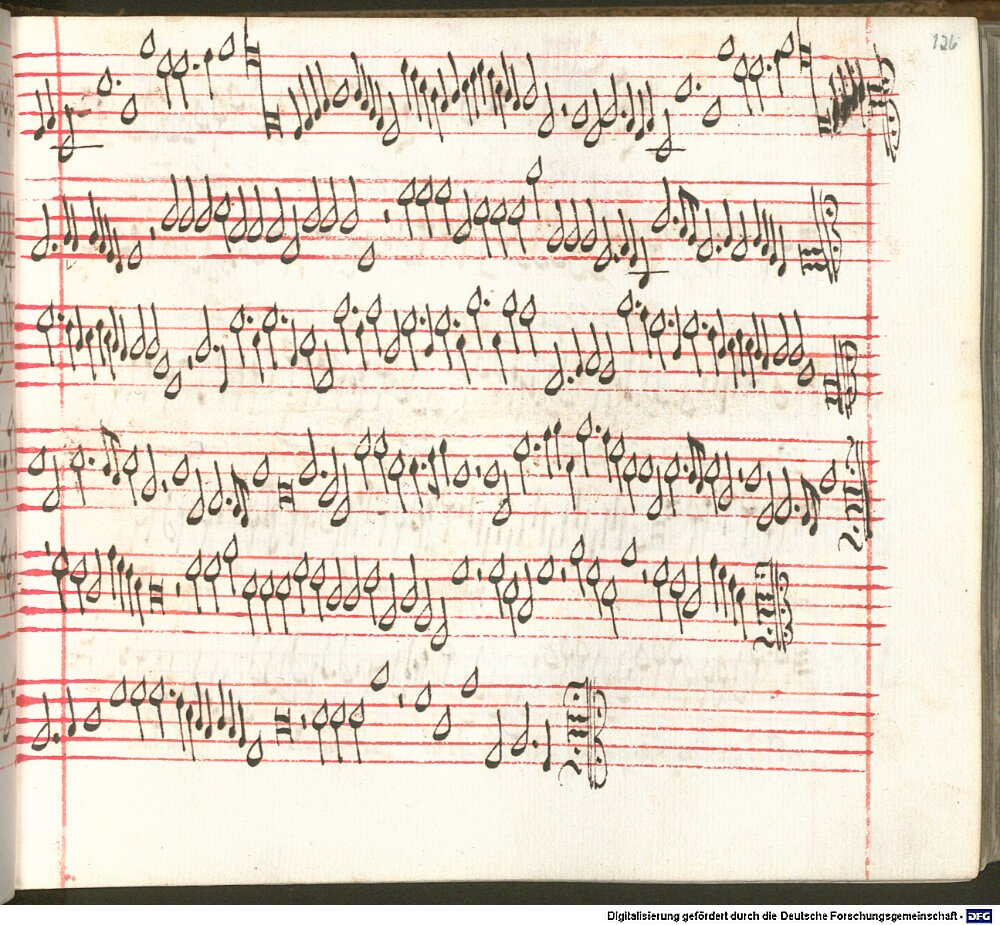 126
Digitalisierung gefördert durch die Deutsche Forschungsgemeinschaft - DFG